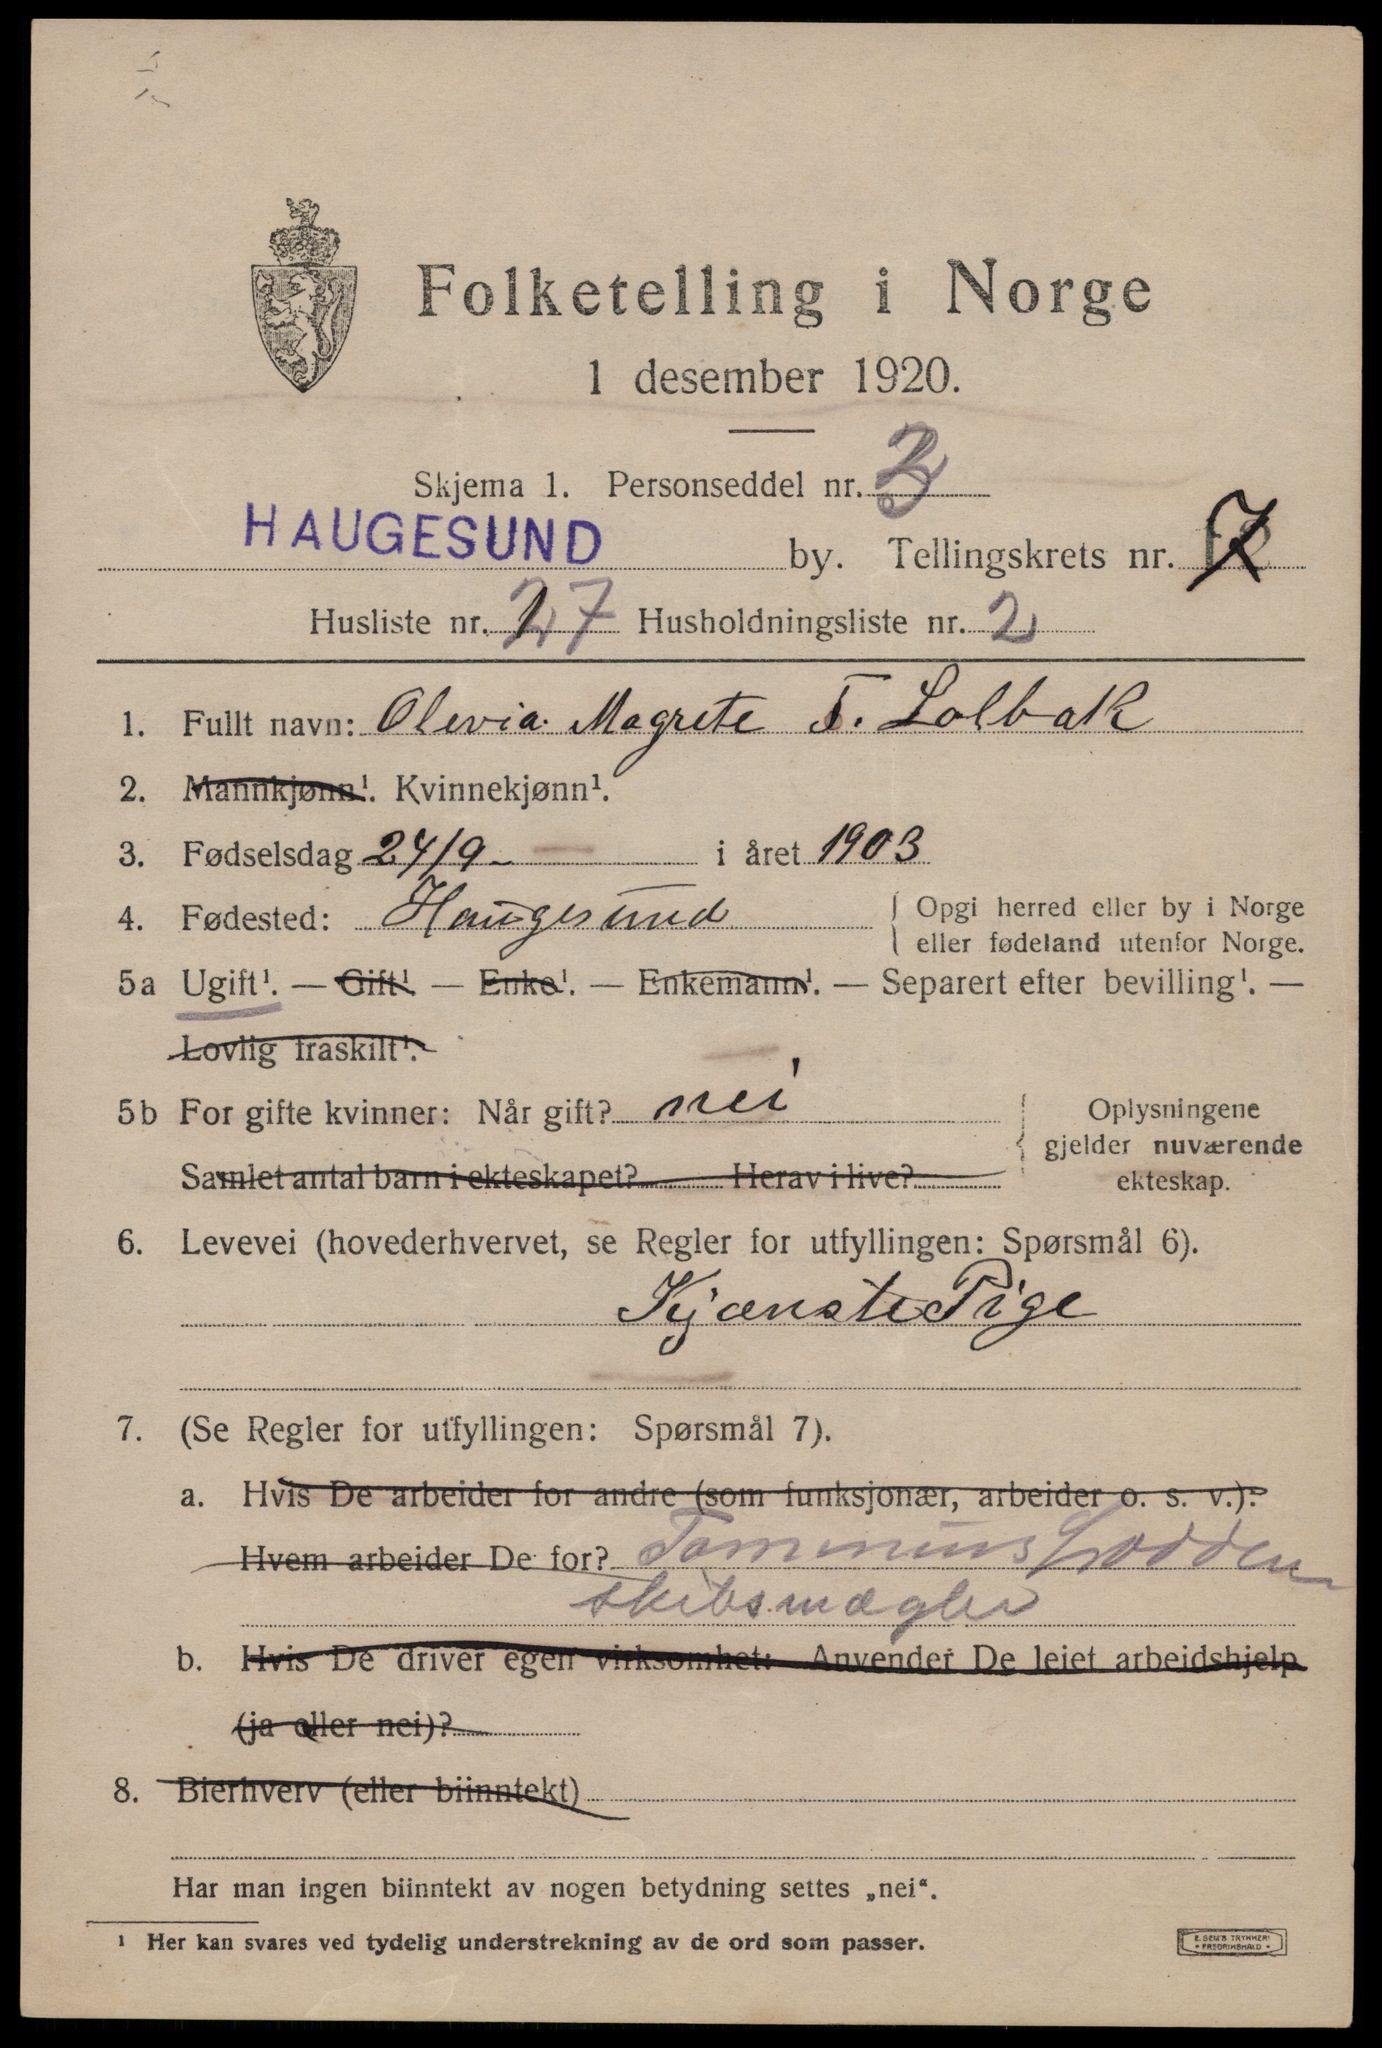 Folketelling i Norge
1 desember 1920.
Skjema 1. Personseddel nr. 3
HAUGESUND by. Tellingskrets nr. 7
Husliste nr. 27 Husholdningsliste nr. 2
1. Fullt navn: Olevia Magrete T. Lolbak
2. Mannkjønn¹. Kvinnekjønn¹.
3. Fødselsdag 24/9 - i året 1903
4. Fødested: Haugesund { Opgi herred eller by i Norge
eller fødeland utenfor Norge.
5a Ugift¹. — Gift¹. — Enke¹. — Enkemann¹. — Separert efter bevilling¹. —
Lovlig fraskilt¹.
5b For gifte kvinner: Når gift? nei { Oplysningene
gjelder nuværende
Samlet antal barn i ekteskapet? Herav i live? ekteskap.
6. Levevei (hovederhvervet, se Regler for utfyllingen: Spørsmål 6).
Kjænste Pige
7. (Se Regler for utfyllingen: Spørsmål 7).
a. Hvis De arbeider for andre (som funksjonær, arbeider o. s. v.):
Hvem arbeider De for? Tommius Lodden
skibsmægler
b. Hvis De driver egen virksomhet: Anvender De leiet arbeidshjelp
(ja eller nei)?
8. Bierhverv (eller biinntekt)
Har man ingen biinntekt av nogen betydning settes „nei“.
¹ Her kan svares ved tydelig understrekning av de ord som passer.
E. SEM'S TRYKKERI
FREDRIKSHALD